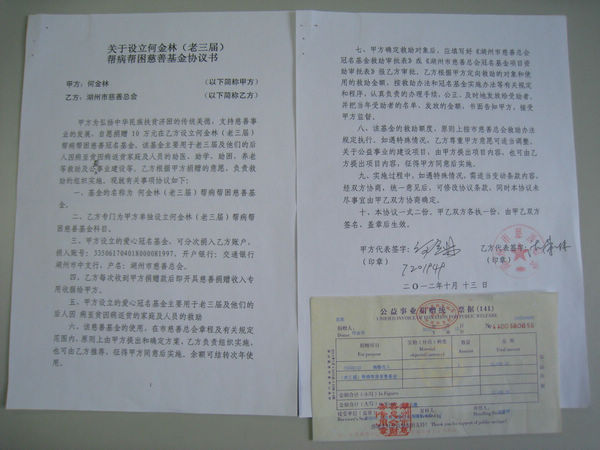 关于设立何金林（老三届）
帮病帮困慈善基金协议书
甲方：何金林 （以下简称甲方）
乙方：湖州市慈善总会 （以下简称乙方）
甲方为弘扬中华民族扶贫济困的传统美德，支持慈善事
业的发展，自愿捐赠 10 万元在乙方设立何金林（老三届）帮
病帮困慈善冠名基金。该基金主要用于老三届及他们的后
人因病至贫困病送贫家庭及人员的助医、助学、助困、养老
等救助及公益事业建设等。乙方根据甲方捐赠的意愿，负责救
助的组织实施。现就有关事项协议如下：
一、基金的名称为 何金林（老三届）帮病帮困慈善基
金。
二、乙方专门为甲方单独设立何金林（老三届）帮病帮
困慈善基金科目。
三、甲方设立的爱心冠名基金，可分次捐入乙方账户。
捐入账号：335061704018000081997，开户银行：交通银行
湖州市中支行，户名：湖州市慈善总会。
四、乙方每次收到甲方捐款后即开具慈善捐赠收入专
用收据给甲方。
五、甲方设立的爱心冠名基金主要用于老三届及他们的
后人因 病至贫困病送贫的家庭及人员的救助
六、该慈善基金的使用，在市慈善总会章程及有关规定
范围内，原则上由甲方提出和确定方案，乙方负责组织实施，
也可由乙方推荐，征得甲方同意后实施。余额可结转次年使
用。
1
七、甲方确定救助对象后，应填写好《湖州市慈善总会
冠名基金救助审批表》或《湖州市慈善总会冠名基金项目资
助审批表》报乙方审批，乙方根据甲方定向救助的对象和使
用的救助金额，按救助办法和冠名基金实施办法等有关规定
和程序，认真负责的办理手续，公正、及时地发放给受助者，
并把当年受助者的名单、发放的金额，书面告知甲方，接受
甲方监督。
八、该基金的救助额度，原则上按市慈善总会救助办法
规定执行。如遇特殊情况，乙方尊重甲方意愿可适当调整。
关于公益事业的建设项目，由甲方提出项目内容，也可由乙
方提出项目内容，征得甲方同意后实施。
九、实施过程中，如遇特殊情况，需适当变动条款内容，
经双方协商，统一意见后，可修改协议条款，同时本协议未
尽事宜由甲乙双方协商确定。
十、本协议一式二份，甲乙双方各执一份，由甲乙双方
签名、盖章后生效。
甲方代表签字：何金林 乙方代表签字：
（印章） （印章）
7201949
二〇一二年十月 十三 日
公益事业捐赠统一票据（141）
UNIFIED INVOICE OF DONATION FOR PUBLIC WELFARE
捐赠人
Donor
捐赠项目
For purpose
金额
Amount
Total amount
（老三届）帮病帮困慈善基金
金额合计（小写）In Figures
金额合计（大写）
Thank you for support of public welfare!